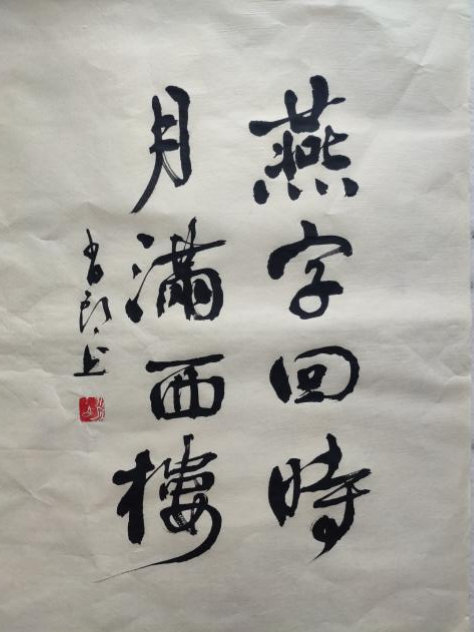 燕字回時
月滿西樓